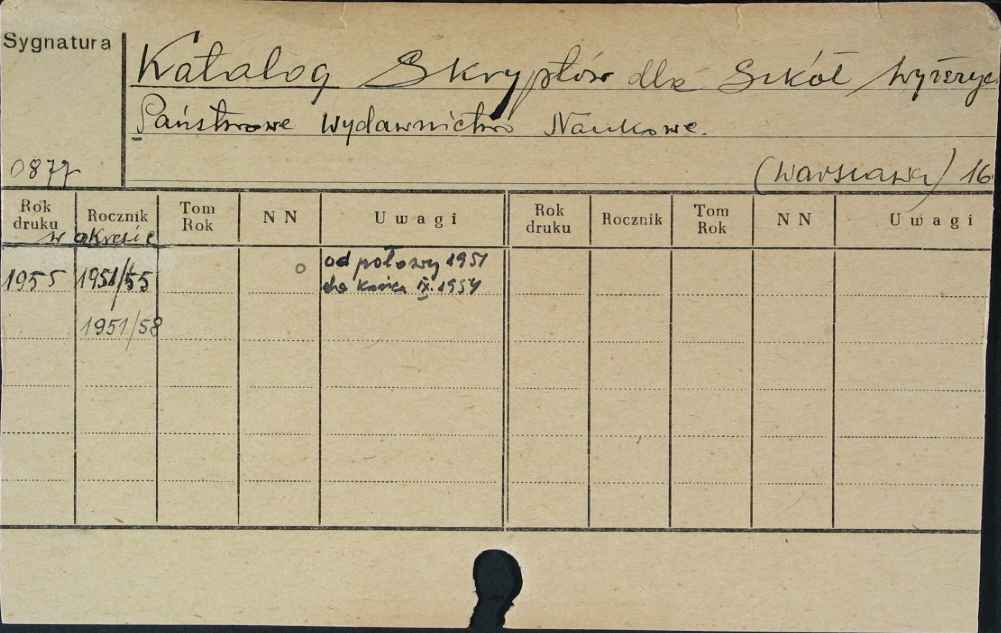 Sygnatura
Katalog Skryptów dla Szkół Wyższyc
Państwowe Wydawnictwo Naukowe.
0877
(Warszawa) 16
Rok druku Rocznik Tom Rok N N U w a g i Rok druku Rocznik Tom Rok N N U w a g i
w okresie
1955 1951/55 o od połowy 1951
do końca IX. 1954
1951/58